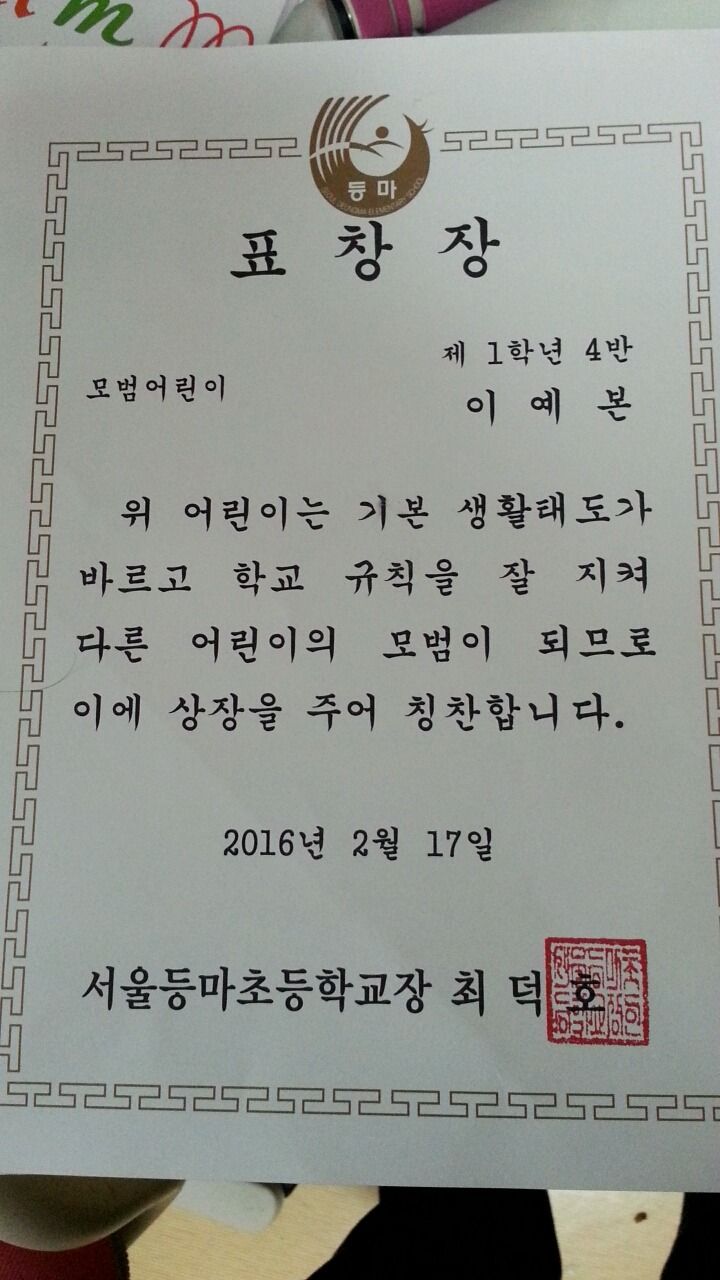 등마
SEOUL DEUNGMA ELEMENTARY SCHOOL
표 창 장
제 1학년 4반
모범어린이
이 예 본
위 어린이는 기본 생활태도가
바르고 학교 규칙을 잘 지켜
다른 어린이의 모범이 되므로
이에 상장을 주어 칭찬합니다.
2016년 2월 17일
서울등마초등학교장 최 덕 호